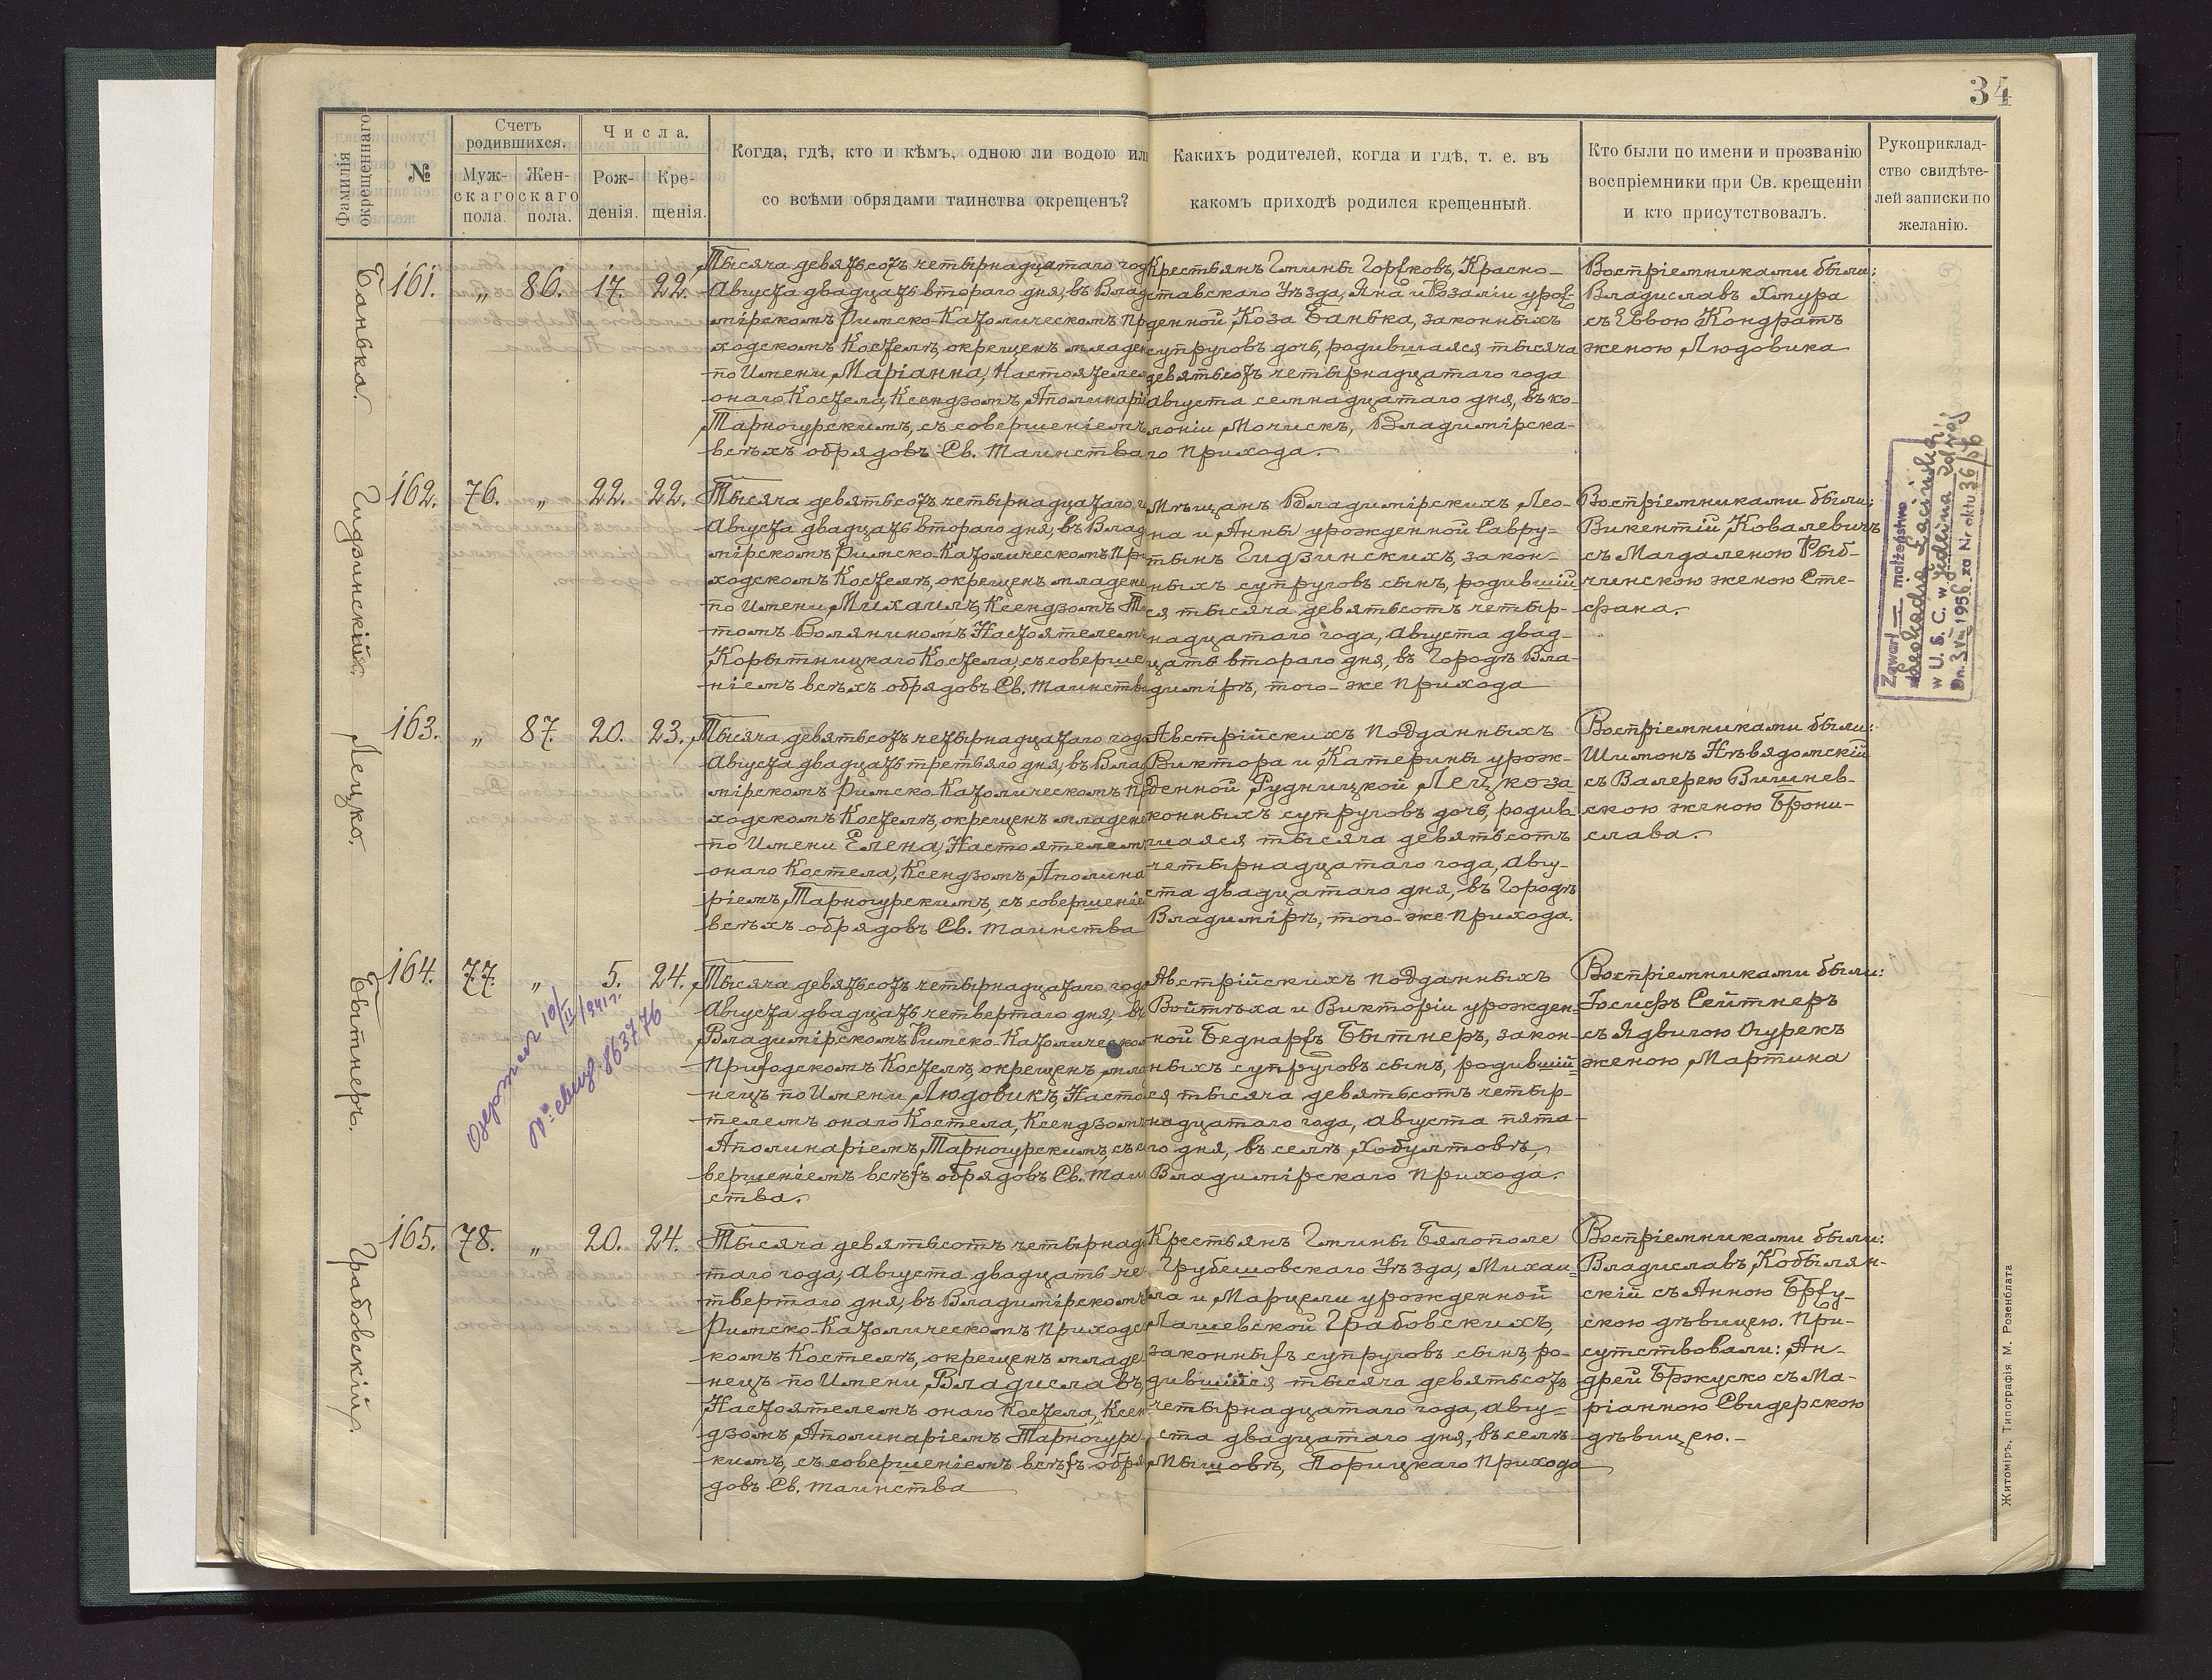 34
Фамилія
окрещеннаго
№
Счетъ
родившихся.
Муж-
скаго
пола.
Жен-
скаго
пола.
Числа.
Рож-
денія.
Кре-
щенія.
Когда, гдѣ, кто и кѣмъ, одною ли водою или
со всѣми обрядами таинства окрещенъ?
Какихъ родителей, когда и гдѣ, т. е. въ
какомъ приходѣ родился крещенный.
Кто были по имени и прозванію
воспріемники при Св. крещеніи
и кто присутствовалъ.
Рукоприклад-
ство свидѣте-
лей записки по
желанію.
Банька.
161.
„
86.
17.
22.
Тысяча девятьсотъ четырнадцатаго год
Августа двадцать втораго дня, въ Влад
мірскомъ Римско-Католическомъ Пр
ходскомъ Костелѣ, окрещенъ младен
по Имени, Маріанна, Настоятелем
онаго Костела, Ксендзомъ, Аполинарі
Тарногурскимъ, съ совершеніемъ
всѣхъ обрядовъ Св. Таинства
Крестьянъ Гмины Горжковъ, Красно-
ставскаго Уѣзда, Яна и Розаліи урож-
денной, Коза Банька, законныхъ
супруговъ дочь, родившаяся тысяча
девятьсотъ четырнадцатаго года
Августа семнадцатаго дня, въ ко-
лоніи Мочискъ, Владимірска-
го Прихода.
Воспріемниками были:
Владиславъ Хмура
съ Еввою Кондратъ
женою Людовика
Гидзинскій.
162.
76.
„
22.
22.
Тысяча девятьсотъ четырнадцатаго г
Августа двадцать втораго дня, въ Влад
мірскомъ Римско-Католическомъ Пр
ходскомъ Костелѣ, окрещенъ младене
по Имени, Михаилъ, Ксендзомъ
томъ Воляниномъ Настоятелемъ
Корытницкаго Костела, съ соверше
ніемъ всѣхъ обрядовъ Св. Таинств
Мѣщанъ Владимірскихъ Лео-
на и Анны урожденной Савру-
тынъ Гидзинскихъ, закон-
ныхъ супруговъ сынъ, родившій
ся тысяча девятьсотъ четыр-
надцатаго года, Августа двад-
цать втораго дня, въ Городѣ Вла-
димірѣ, того-же Прихода
Воспріемниками были:
Викентій, Ковалевичъ
съ Магдаленою Рыб-
чинскою женою Сте-
фана.
Zawarł małżeństwo
w U. S. C. w Jedlina Zdrój
Dn. 3 VIII 1956 za Nr aktu 36/56
Лецко.
163.
„
87.
20.
23.
Тысяча девятьсотъ четырнадцатаго год
Августа двадцать третьяго дня, въ Влад
мірскомъ Римско-Католическомъ Пр
ходскомъ Костелѣ, окрещенъ младене
по Имени Елена, Настоятелем
онаго Костела, Ксендзомъ, Аполина
ріемъ, Тарногурскимъ, съ совершеніе
всѣхъ обрядовъ Св. Таинства
Австрійскихъ подданныхъ
Виктора и Катерины урож-
денной, Рудницкой Лецко за-
конныхъ супруговъ дочь, родив-
шаяся тысяча девятьсотъ
четырнадцатаго года, Авгу-
ста двадцатаго дня, въ Городѣ
Владимірѣ, того-же Прихода.
Воспріемниками были:
Шимонъ Нѣвядомскій
съ Валерею Вишнев-
скою женою Брони-
слава.
Бытнеръ.
164.
77.
„
5.
24.
10/II/1941 г.
№ свид. 863776
Тысяча девятьсотъ четырнадцатаго год
Августа двадцать четвертаго дня, въ
Владимірскомъ Римско-Католическом
Приходскомъ Костелѣ, окрещенъ, мла
нецъ по Имени, Людовикъ, Насто
телемъ онаго Костела, Ксендзомъ
Аполинаріемъ, Тарногурскимъ, съ с
вершеніемъ всѣхъ обрядовъ Св. Таин
ства.
Австрійскихъ подданныхъ
Войтѣха и Викторіи урожден-
ной Беднаржъ Бытнеръ, закон-
ныхъ супруговъ сынъ, родившій-
ся тысяча девятьсотъ четыр-
надцатаго года, Августа пята-
го дня, въ селѣ, Хобултовѣ,
Владимірскаго Прихода.
Воспріемниками были:
Іосифъ Сейтнеръ
съ Ядвигою Огурекъ
женою Мартина
Грабовскій
165.
78.
„
20.
24.
Тысяча девятьсотъ четырнад
таго года, Августа двадцать че
твертаго дня, въ Владимірскомъ
Римско-Католическомъ Приходс
комъ Костелѣ, окрещенъ младе
нецъ по Имени, Владиславъ,
Настоятелемъ онаго Костела, Ксен
дзомъ, Аполинаріемъ Тарногурс
кимъ, съ совершеніемъ всѣхъ обря
довъ Св. Таинства
Крестьянъ Гмины Бялополе
Грубешовскаго Уѣзда, Михаи-
ла и Марцели урожденной
Лашевской Грабовскихъ,
законныхъ супруговъ сынъ, ро-
дившійся тысяча девятьсотъ
четырнадцатаго года, Авгу-
ста двадцатаго дня, въ селѣ
Мышовѣ, Порицкаго Прихода
Воспріемниками были:
Владиславъ, Кобылян-
скій съ Анною Бржу-
скою дѣвицею. При-
сутствовали: Ан-
дрей Бржуско съ Ма-
ріанною Свидерскою
дѣвицею.-
Житоміръ, Типографія М. Розенблата